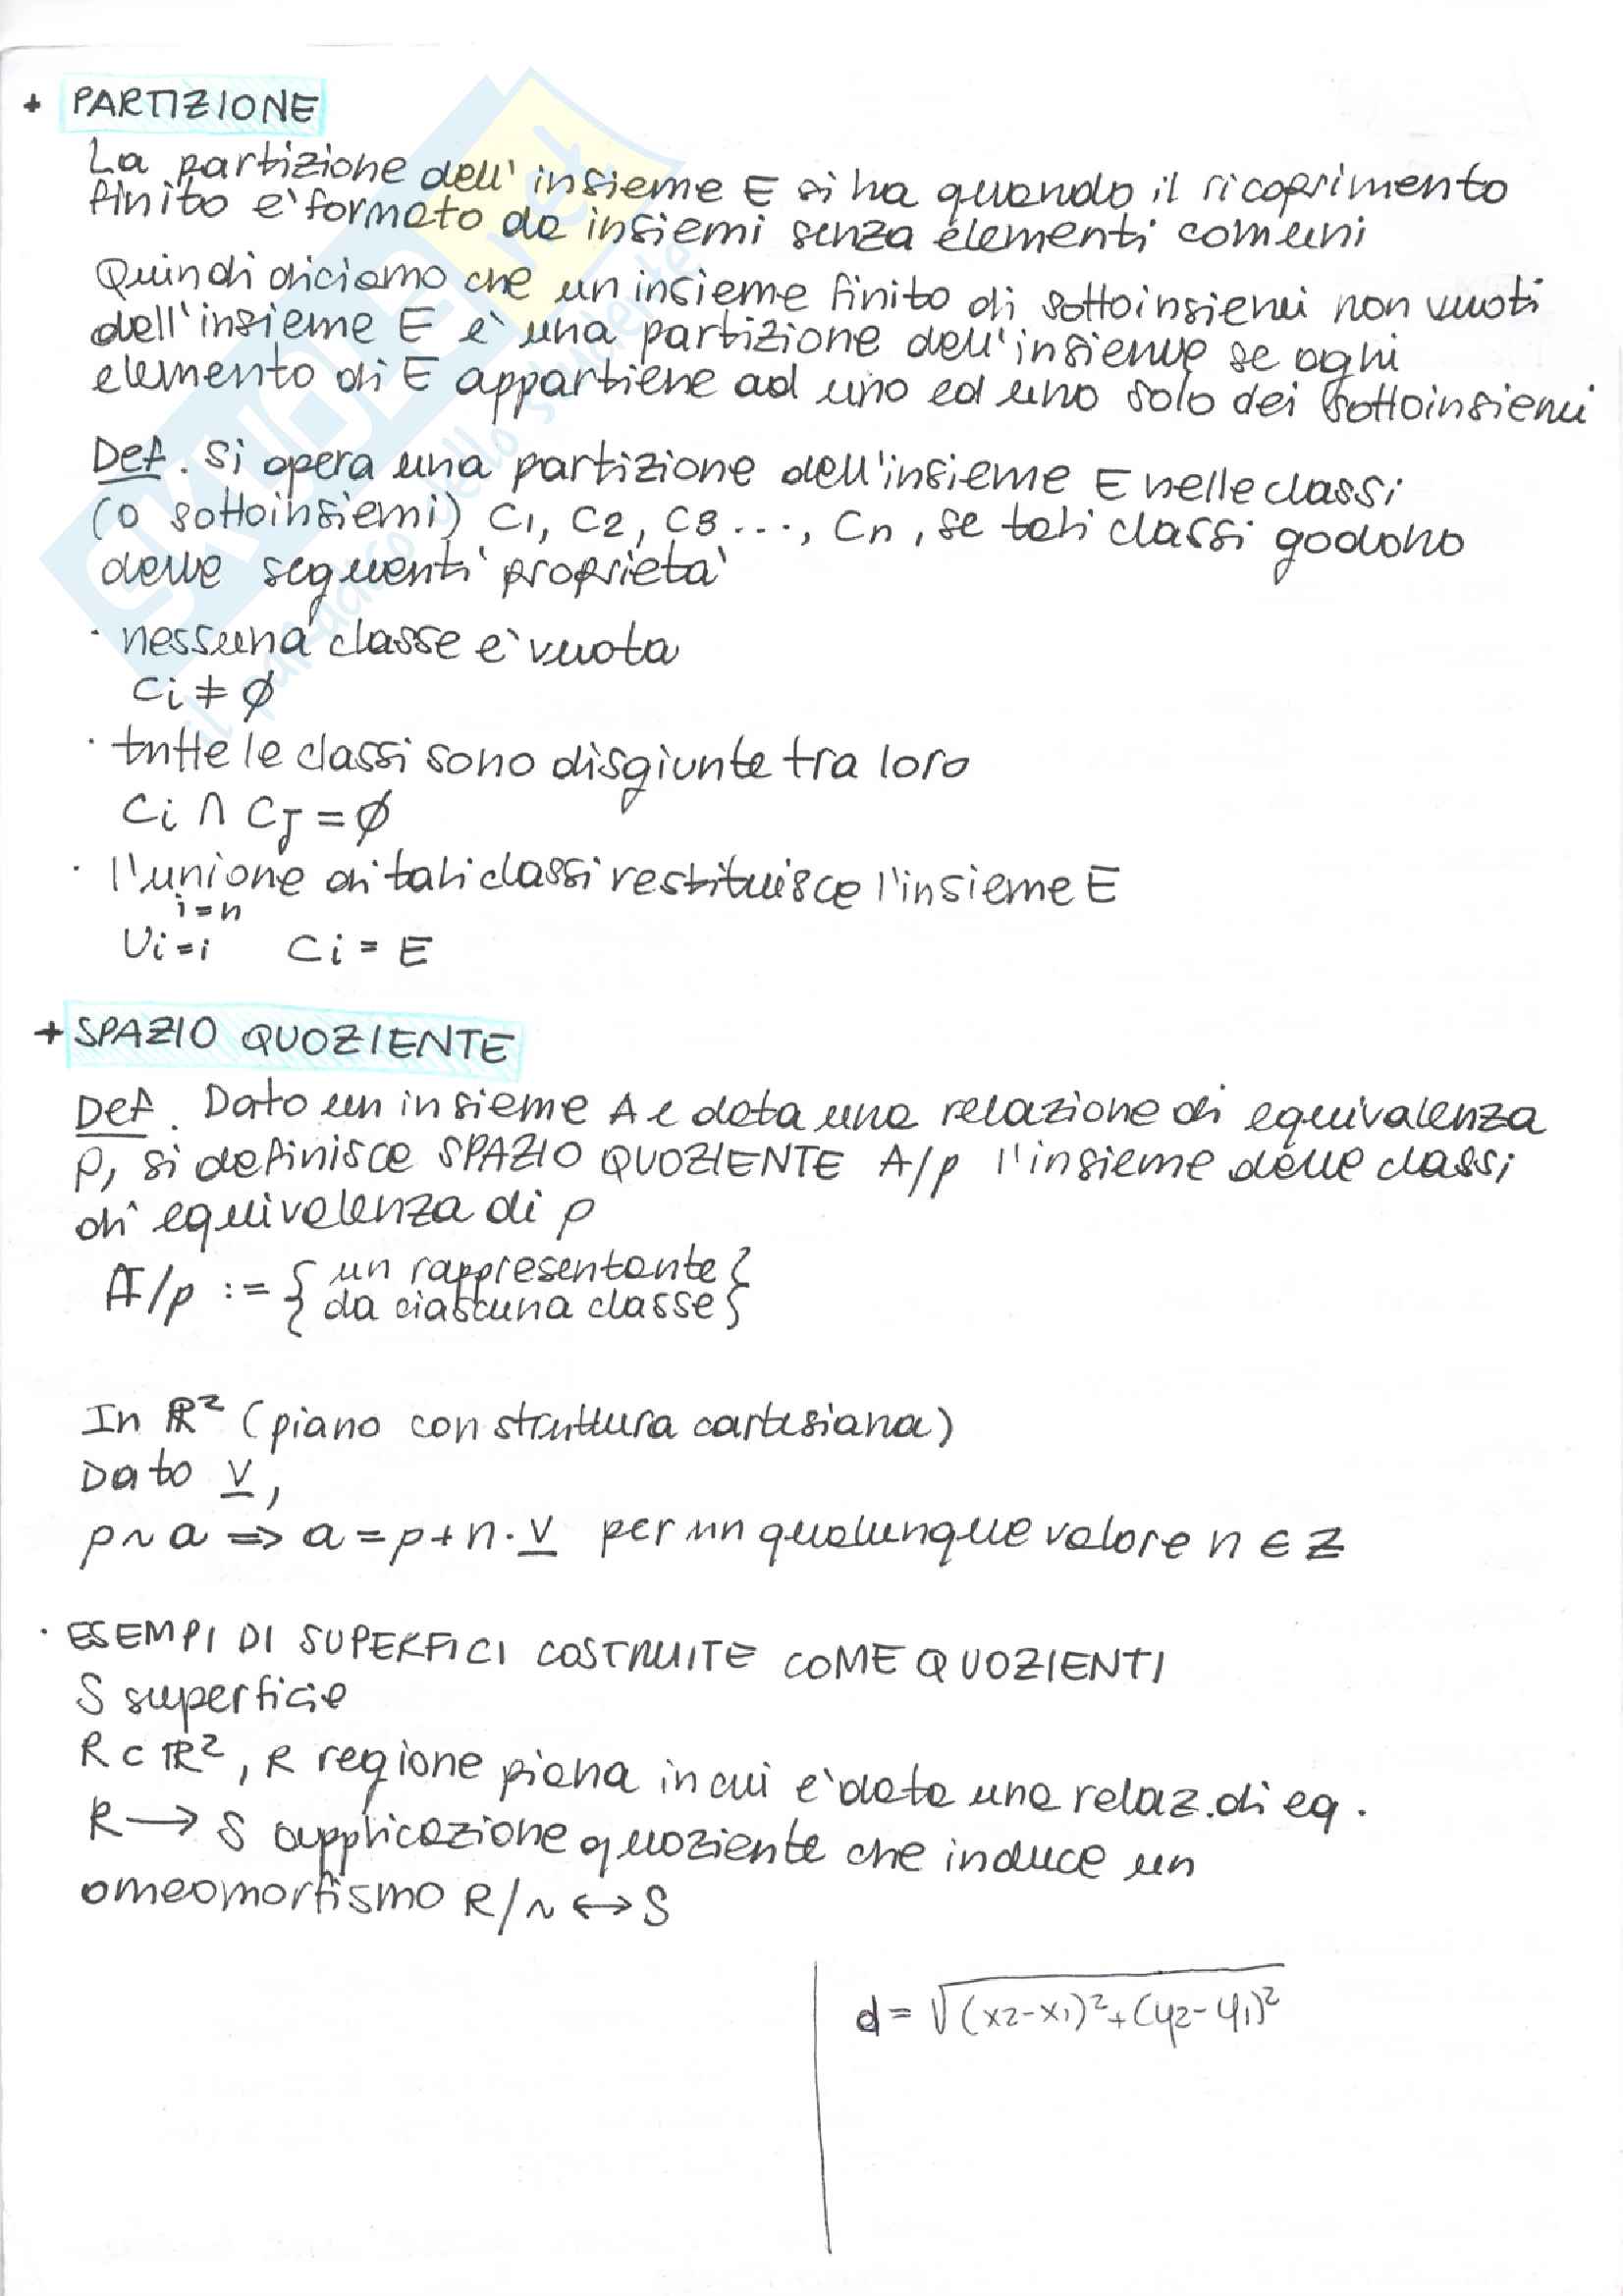 + PARTIZIONE
La partizione dell' insieme E si ha quando il ricoprimento
finito e' formato da insiemi senza elementi comuni
Quindi diciamo che un insieme finito di sottoinsiemi non vuoti
dell'insieme E e' una partizione dell'insieme se ogni
elemento di E appartiene ad uno ed uno solo dei sottoinsiemi
Def. Si opera una partizione dell'insieme E nelle classi
(o sottoinsiemi) C1, C2, C3 ..., Cn, se tali classi godono
delle seguenti proprieta'
· nessuna classe e' vuota
Ci ≠ ∅
· tutte le classi sono disgiunte tra loro
Ci ∩ CJ = ∅
· l'unione di tali classi restituisce l'insieme E
i=n
Ui=i Ci = E
+ SPAZIO QUOZIENTE
Def. Dato un insieme A e data una relazione di equivalenza
ρ, si definisce SPAZIO QUOZIENTE A/ρ l'insieme delle classi
di equivalenza di ρ
A/ρ := { un rappresentante
da ciascuna classe }
In ℝ² (piano con struttura cartesiana)
Dato v,
p ~ a => a = p + n · v per un qualunque valore n ∈ Z
· ESEMPI DI SUPERFICI COSTRUITE COME QUOZIENTI
S superficie
R ⊂ ℝ², R regione piana in cui e' data una relaz. di eq.
R → S applicazione quoziente che induce un
omeomorfismo R/~ ↔ S
d = √(x2-x1)² + (y2-y1)²
SKUOLA.net
il paradiso dello studente